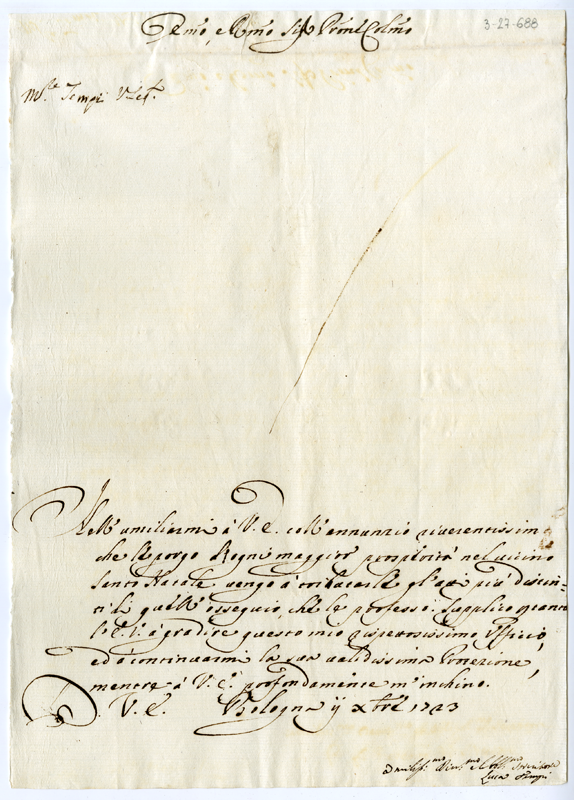 Em̃o, e Rm̃o Sigr Prõn Colmo
3-27-688
Tempi
Nell' umiliarmi à V. E. coll'annunzio riverentissimo
che le porgo d'ogni maggior prosperità nel vicino
Santo Natale vengo à tributarle gl'atti più distin-
ti di quell' ossequio, che le professo. Supplico
l'E. V. à gradire questo mio rispettosissimo Ufficio,
ed à continuarmi la sua validissima Protezione,
mentre à V. E. profondamente m'inchino.
D. V. E. Bologna ij Xbre 1723
Luca Tempi